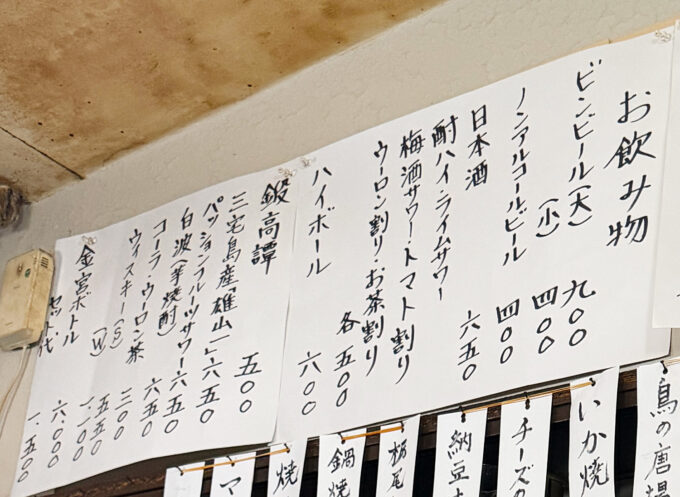 お飲み物
ビンビール(大) 九〇〇
(小) 四〇〇
ノンアルコールビール 四〇〇
日本酒 六五〇
酎ハイ・ライムサワー
梅酒サワー・トマト割り
ウーロン割り・お茶割り
各 五〇〇
ハイボール 六〇〇
鍛高譚 五〇〇
三宅島産「雄山一」 六五〇
パッションフルーツサワー 六五〇
白波(芋焼酎) 六五〇
コーラ・ウーロン茶 三〇〇
ウィスキー(S) 五五〇
(W) 一.一〇〇
金宮ボトル 六.〇〇〇
セット代 一.五〇〇
鳥の唐揚
いか焼
チーズの
納豆
栃尾
鍋焼
焼
マ